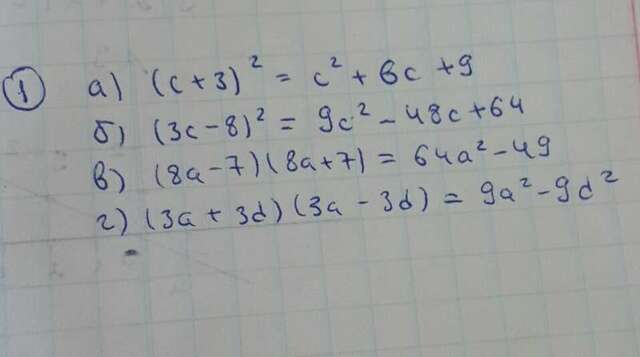 1 а) (c + 3)² = c² + 6c + 9
б) (3c - 8)² = 9c² - 48c + 64
в) (8a - 7)(8a + 7) = 64a² - 49
г) (3a + 3d)(3a - 3d) = 9a² - 9d²